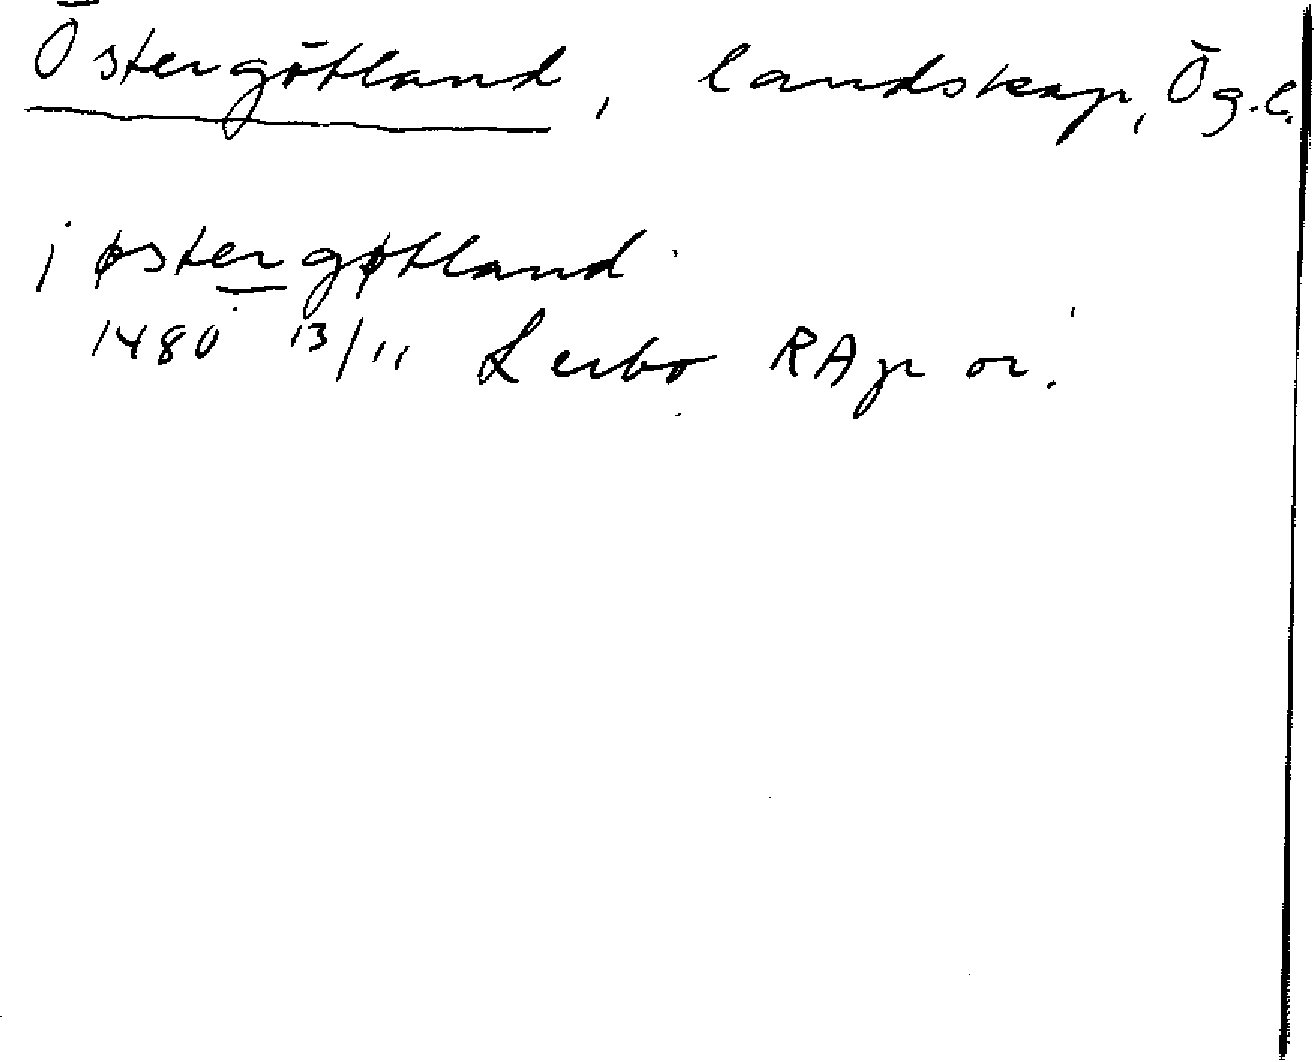 Östergötland, landskap, Ög.l.
i østergøtland
1480 13/11 Lerbo RAp or.